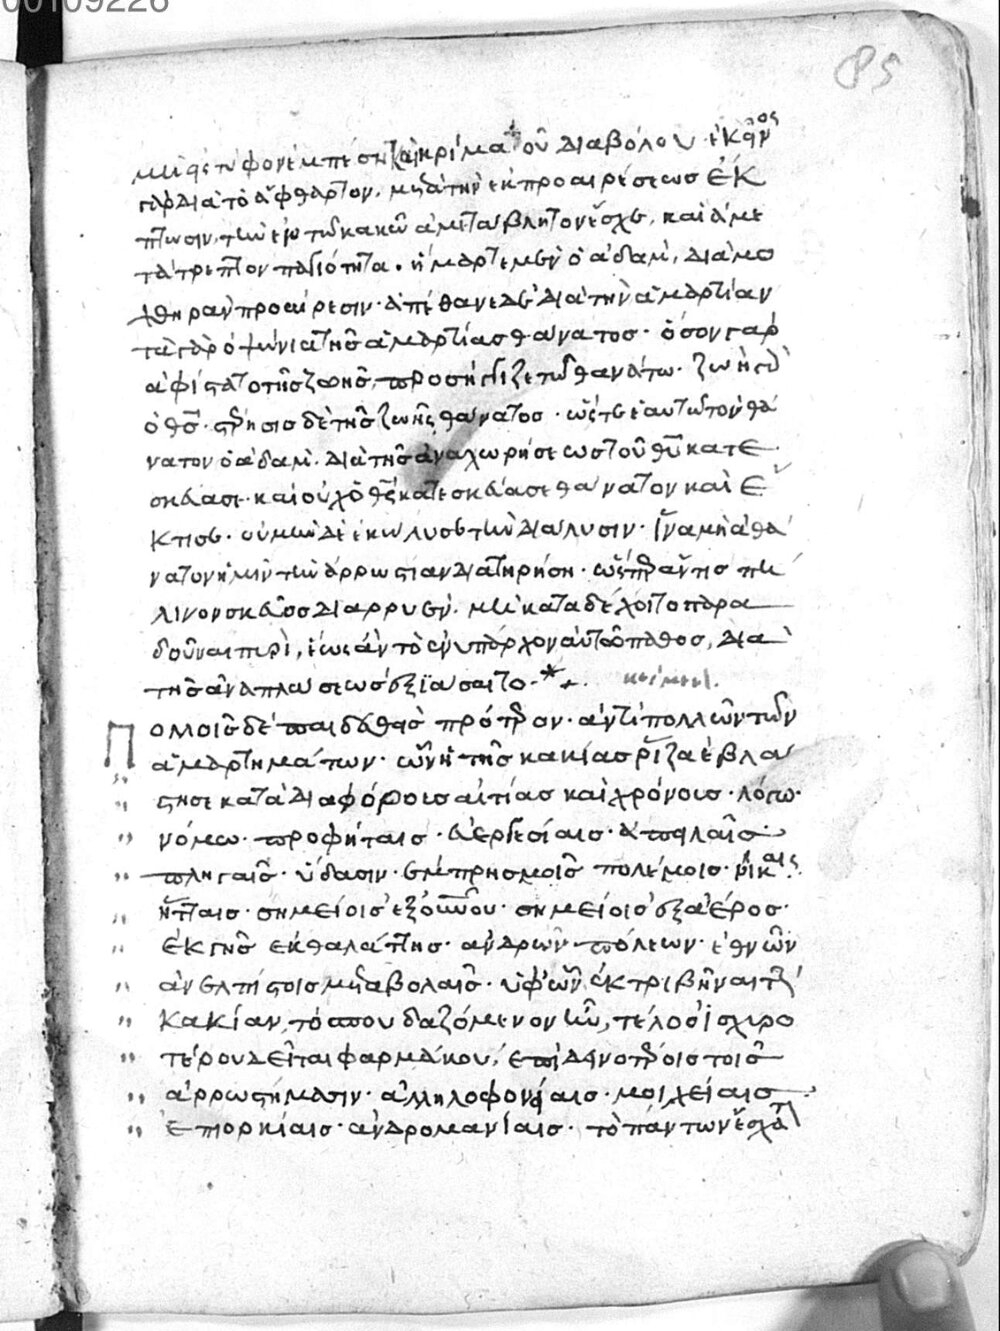 00109226
85
μὴ εἰς τύφον ἐμπέσῃ καὶ κρίμα τοῦ διαβόλου. ἐκεῖνος
γὰρ διὰ τὸ ἄφθαρτον, μετὰ τὴν ἐκ προαιρέσεως ἔκ
πτωσιν, τὴν ἐν τῷ κακῷ ἀμετάβλητον ἔσχε, καὶ ἀμε
τάτρεπτον παγιότητα. ἥμαρτε μὲν ὁ ἀδὰμ, διὰ μο
χθηρὰν προαίρεσιν· ἀπέθανε δὲ διὰ τὴν ἁμαρτίαν
τὰ γὰρ ὀψώνια τῆς ἁμαρτίας θάνατος· ὅσον γὰρ
ἀφίστατο τῆς ζωῆς, προσήγγιζε τῷ θανάτῳ· ζωὴ γὰρ
ὁ θς· στέρησις δὲ τῆς ζωῆς θάνατος· ὥστε ἑαυτῷ τὸν θά
νατον ὁ ἀδὰμ διὰ τῆς ἀναχωρήσεως τοῦ θυ κατε
σκεύασε· καὶ οὐχ ὁ θς κατεσκεύασε θάνατον καὶ ἔ
κτισε· οὐ μὴν δὲ ἐκώλυσε τὴν διάλυσιν· ἵνα μὴ ἀθά
νατον ἡμῖν τὴν ἀρρωστίαν διατηρήσῃ· ὥσπερ ἄν τις πή
λινον σκεῦος διαρρυὲν, μὴ καταδέχοιτο παρα
δοῦναι πυρὶ, ἕως ἂν τὸ ἐνυπάρχον αὐτῷ πάθος, διὰ
τῆς ἀναπλάσεως ἐξιάσαιτο. κείμενον.
Πολλοῖς δὲ παιδευθεὶς πρότερον· ἀντὶ πολλῶν τῶν
ἁμαρτημάτων· ὧν ἡ τῆς κακίας ῥίζα ἐβλά
στησε κατὰ διαφόρους αἰτίας καὶ χρόνους· λόγῳ·
νόμῳ· προφήταις· εὐεργεσίαις· ἀπειλαῖς·
πληγαῖς· ὕδασιν· ἐμπρησμοῖς πολέμοις· νίκαις·
ἥτταις· σημείοις ἐξ οὐνου· σημείοις ἐξ ἀέρος·
ἐκ γῆς ἐκ θαλάττης· ἀνδρῶν· πόλεων· ἐθνῶν
ἀνελπίστοις μεταβολαῖς· ὑφ' ὧν ἐκτριβῆναι τὴν
κακίαν, τὸ σπουδαζόμενον ἦν, τέλος ἰσχυρο
τέρου δεῖται φαρμάκου, ἐπὶ δεινοτέροις τοῖς
ἀρρωστήμασιν· ἀλληλοφονίαις· μοιχείαις
ἐπιορκίαις· ἀνδρομανίαις· τὸ πάντων ἔσχατον